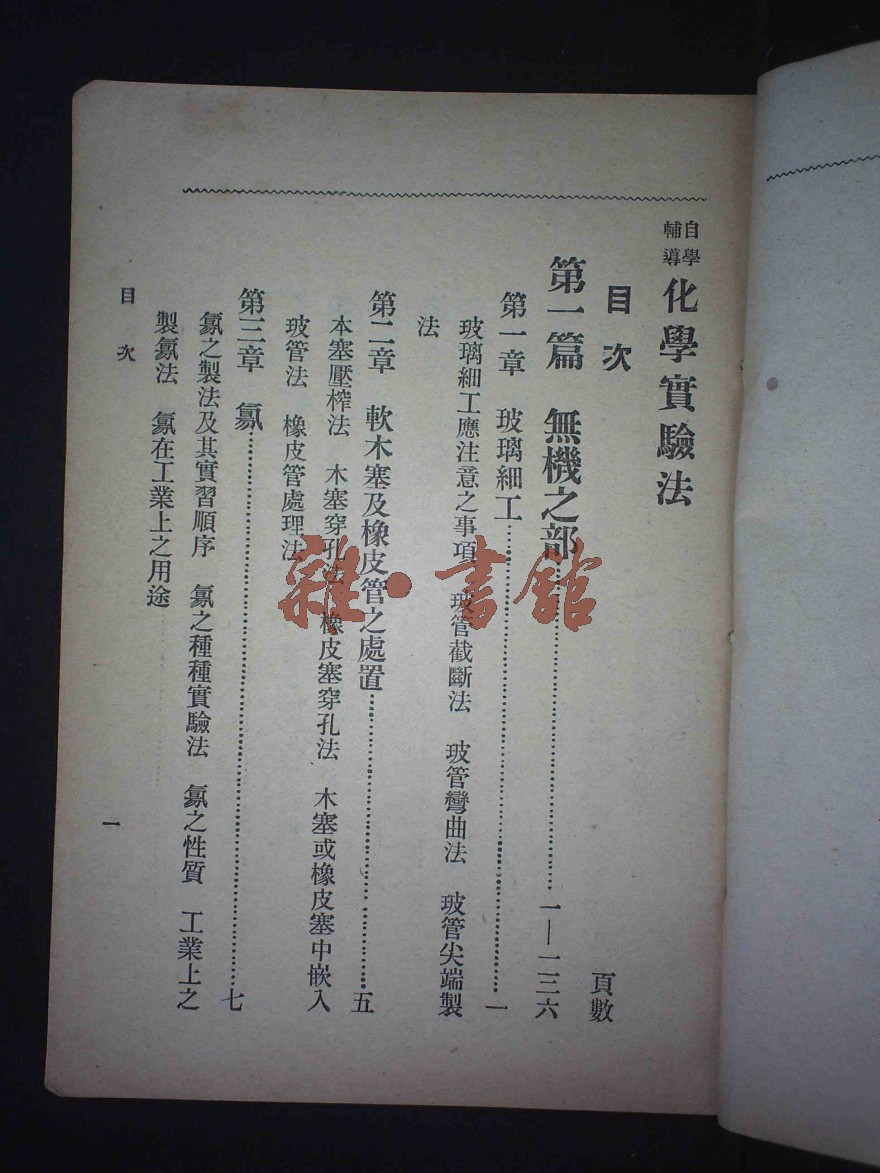 自學
輔導
化學實驗法
目次
頁數
第一篇 無機之部……一—一三六
第一章 玻璃細工……一
玻璃細工應注意之事項 玻管截斷法 玻管彎曲法 玻管尖端製
法
第二章 軟木塞及橡皮管之處置……五
本塞壓榨法 木塞穿孔法 橡皮塞穿孔法 木塞或橡皮塞中嵌入
玻管法 橡皮管處理法
第三章 氯……七
氯之製法及其實習順序 氯之種種實驗法 氯之性質 工業上之
製氯法 氯在工業上之用途
目次
一
雜·書館